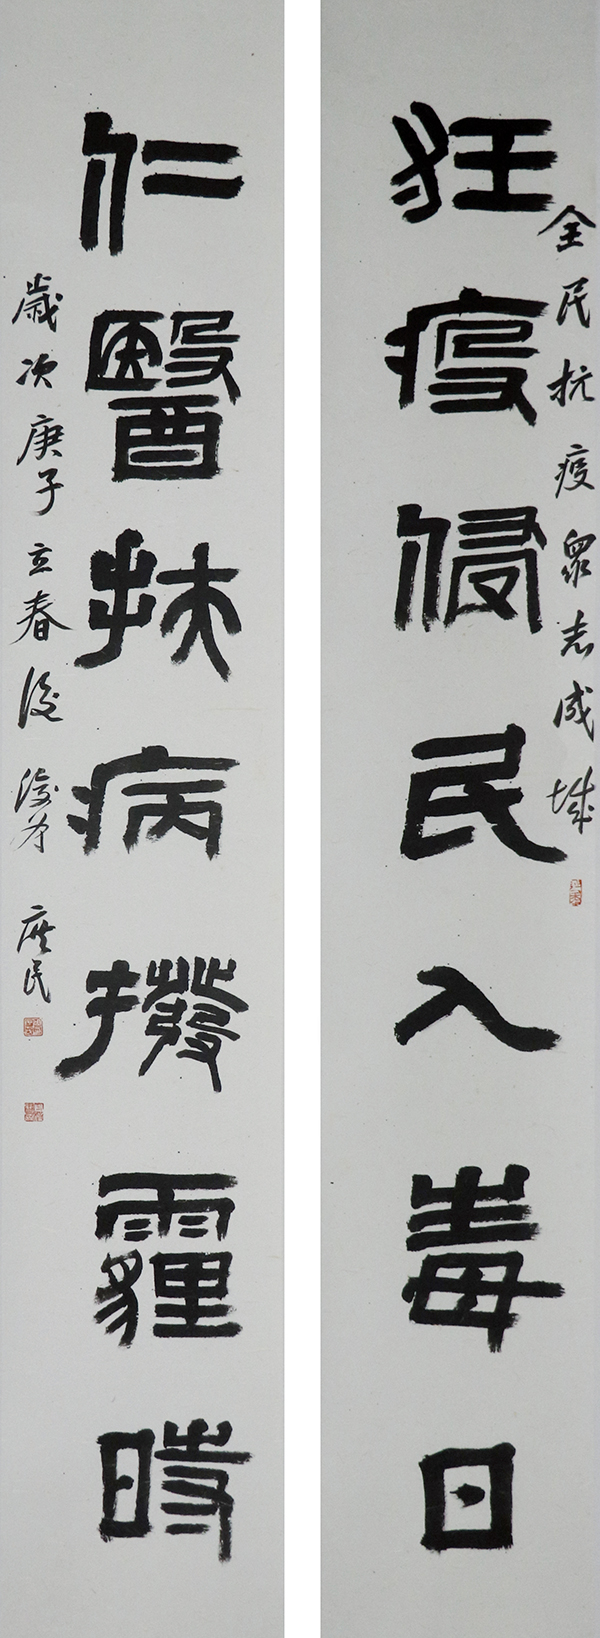 全民抗疫眾志成城
狂疫侵民入毒日
仁醫扶病撥霾時
歲次庚子立春後 庶民